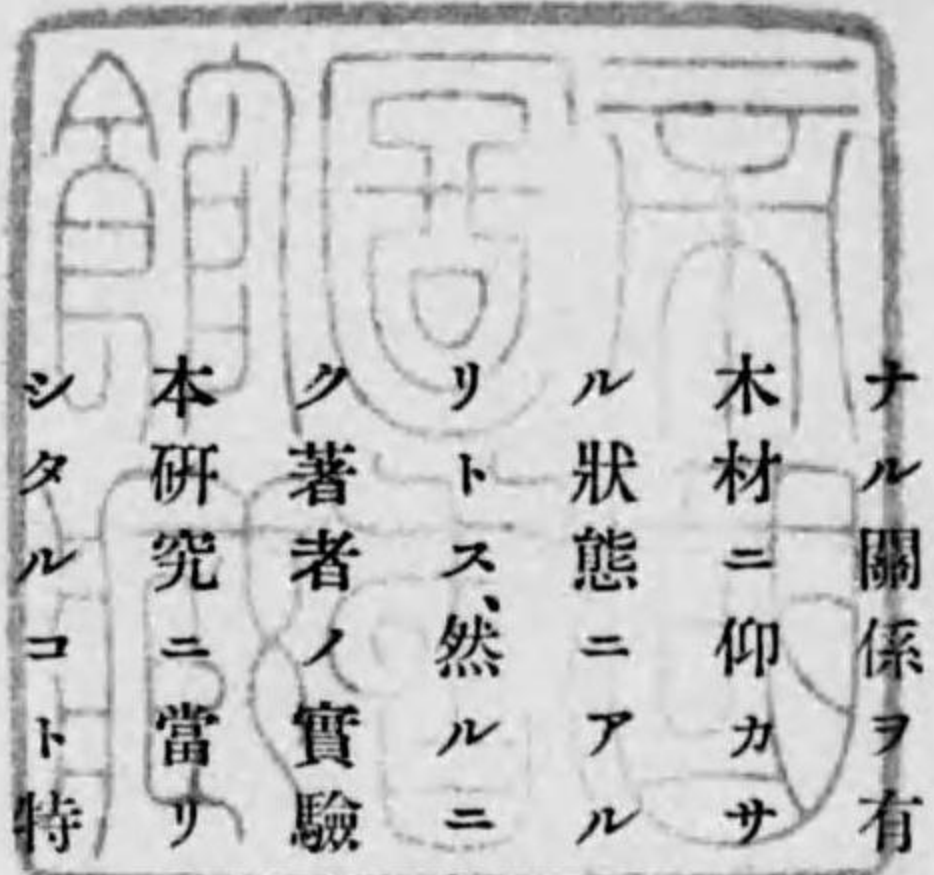 ナル關係ヲ有
木材ニ仰カサ
ル狀態ニアル
リトス、然ルニ
ク著者ノ實驗
本硏究ニ當リ
シタルコト特